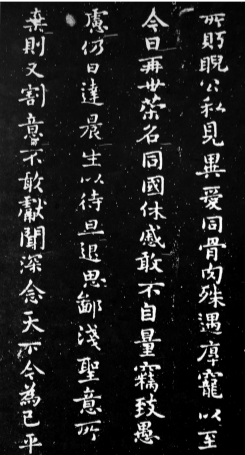 所盱睨公私見異愛同骨肉殊遇厚寵以至
今日再世榮名同國休慼敢不自量竊致愚
慮仍日達晨坐以待旦退思鄙淺聖意所
棄則又割意不敢獻聞深念天下今為已平